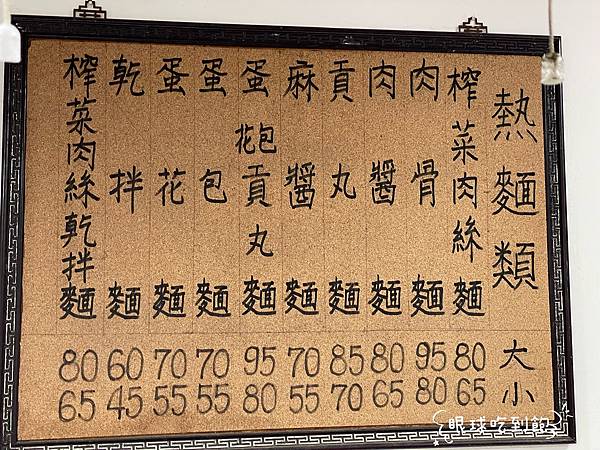 熱麵類 大 小
榨菜肉絲麵 80 65
肉骨麵 95 80
肉醬麵 80 65
貢丸麵 85 70
麻醬麵 70 55
蛋包花貢丸麵 95 80
蛋包麵 70 55
蛋花麵 70 55
乾拌麵 60 45
榨菜肉絲乾拌麵 80 65
眼球吃到飽